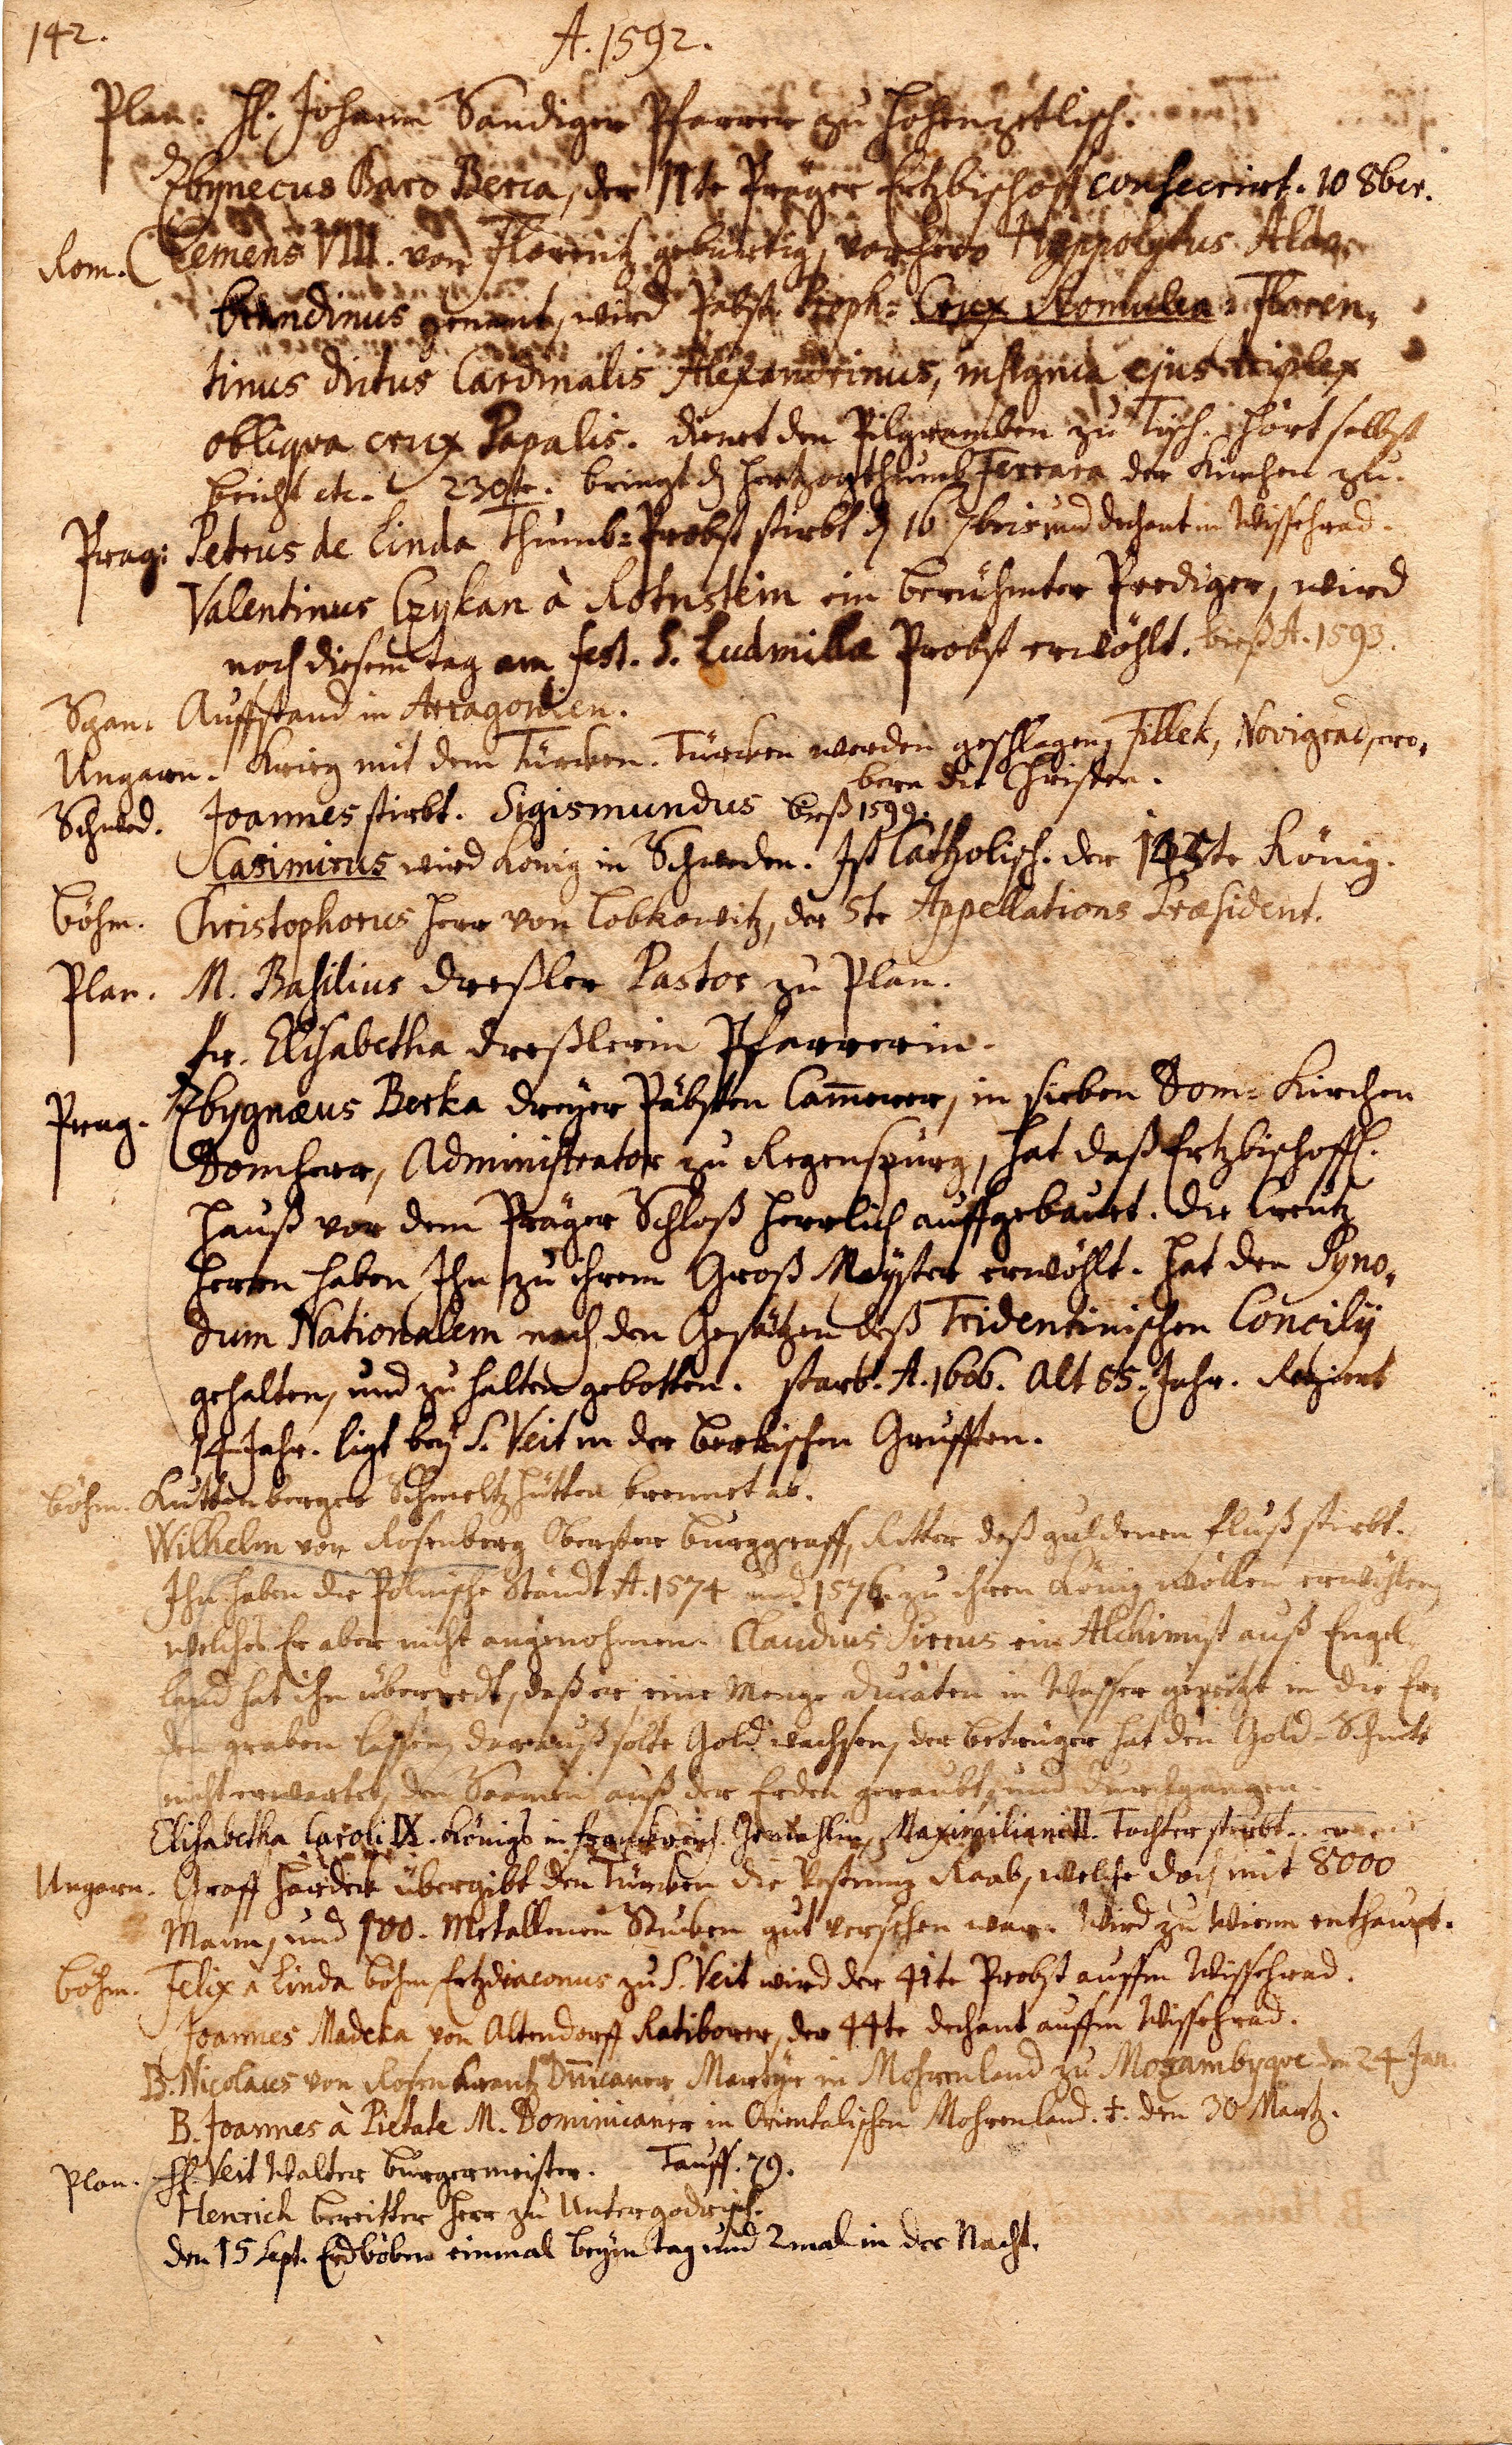 142.
A. 1592.
Plan. H. Johann Sandiger Pfarrer zu Hohenzetlisch.
Zbynecus Baro Berca, der 11te Präger Ertzbischoff consecrirt. 10 8br.
Rom. Clemens VIII. von Florentz gebürtig, vorhero Hyppolytus Aldo,
brandinus genent, wird Pabst. Proph: Crux Romulea: Floren,
tinus dictus Cardinalis Alexandrinus, insignia ejus triplex
obliqva crux Papalis. dienet den Pilgramben zu Tisch. hört selbst
beicht etc. 230te. bringt dz Hertzogthumb Ferrara der Kirchen zu.
Prag: Petrus de Linda Thumb=Probst stirbt d 16 7bris und dechant in Wissehrad.
Valentinus Czykan à Rotnstein ein berühmter Prediger, wird
noch diesem tag am fest. S. Ludmillæ Probst erwöhlt. bieß A. 1593.
Span. Auffstand in Arragonien.
Ungarn. Krieg mit dem Türcken. Türcken werden geschlagen, Fillek, Novigrad, ero,
bern die Christen.
Schwed. Joannes stirbt. Sigismundus bieß 1599.
Casimirus wird König in Schweden. Ist Catholisch. der 145te König.
Böhm. Christophorus Herr von Lobkowitz, der 5te Appellations Præsident.
Plan. M. Basilius dreßler Pastor zu Plan.
Fr. Elisabetha dreßlerin Pfarrerin.
Prag. Zbygnæus Berka dreyer Päbsten Cam̄erer, in sieben Dom=Kirchen
Domherr, Administrator zu Regenspurg, hat daß Ertzbischoffl.
Hauß vor dem Präger Schloß herrlich auffgebauet. die Creutz
Herren haben Ihn zu ihrem Groß Meyster erwöhlt. hat den Syno,
dum Nationalem nach den Gesätzen deß Tridentinischen Concilij
gehalten, und zu halten gebotten. starb. A. 1606. Alt 55. Jahr. Regiert
14 Jahr. ligt bey S. Veit in der Berkischen Grufften.
Böhm. Kuttenberger Schmeltzhütten brennet ab.
Wilhelm von Rosenberg Obersten Burggraff, Ritter deß guldenen Fluß stirbt.
Ihn haben die Polnische Ständt A. 1574 und 1576. zu ihren König wöllen erwöhlen,
welches Er aber nicht angenohmen. Claudius Sirrus ein Alchimist auß Engel,
land hat ihn überredt, daß er eine Menge ducaten in Wasser in die Er,
den graben lassen, darauß solte Gold wachsen, der betruger hat den Gold-Schnitt
nicht erwartet, den Saamen auß der Erden geraubt, und durchgangen.
Elisabetha Caroli IX. Königs in Franckreich Gemahlin, Maximiliani II. Tochter stirbt.
Ungarn. Graff Hardek übergibt den Türcken die Vestung Raab, welche doch mit 8000
Mann, und 100. Metallenen Stucken gut versehen war. Wird zu Wienn enthaupt.
Böhm. Felix à Linda böhm Ertzdiaconus zu S. Veit wird der 41te Probst auffm Wissehrad.
Joannes Madera von Altendorff Ratiborer, der 44te dechant auffm Wissehrad.
B. Nicolaus von Rosenkrantz Dn̄icaner Martyr in Mohrenland zu Mozambyque den 24 Jan.
B. Joannes à Pietate M. Dominicaner in Orientalischen Mohrenland. ‡. den 30 Martz.
Plan. H. Veit Walter Burgermeister. Tauff. 79.
Henrich bereitter Herr zu Untergodrisch.
den 15 Sept. Erdböben einmal beym tag und 2 mal in der Nacht.